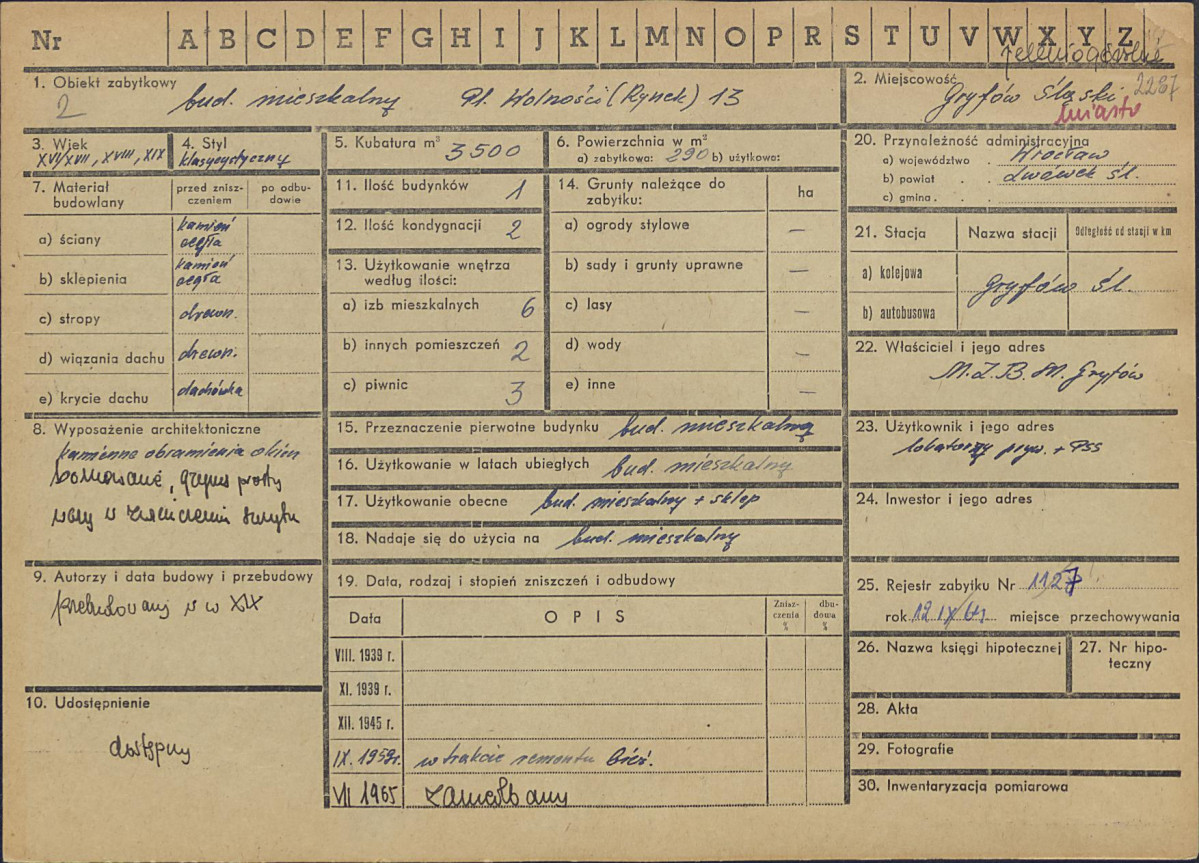 Nr A B C D E F G H I J K L M N O P R S T U V W X Y Z
jeleniogórskie
1. Obiekt zabytkowy
2 bud. mieszkalny Pl. Wolności (Rynek) 13
2. Miejscowość 2287
Gryfów Śląski
miasto
3. Wiek
XVI/XVII, XVIII, XIX
4. Styl
klasycystyczny
5. Kubatura m³ 3500
6. Powierzchnia w m²
a) zabytkowa: 290 b) użytkowa:
20. Przynależność administracyjna
a) województwo . Wrocław
b) powiat . . Lwówek Śl.
c) gmina . .
7. Materiał budowlany
przed zniszczeniem
po odbudowie
a) ściany kamień cegła
b) sklepienia kamień cegła
c) stropy drewn.
d) wiązania dachu drewn.
e) krycie dachu dachówka
11. Ilość budynków 1
12. Ilość kondygnacji 2
13. Użytkowanie wnętrza
według ilości:
a) izb mieszkalnych 6
b) innych pomieszczeń 2
c) piwnic 3
14. Grunty należące do
zabytku: ha
a) ogrody stylowe –
b) sady i grunty uprawne –
c) lasy –
d) wody –
e) inne –
21. Stacja Nazwa stacji Odległość od stacji w km
a) kolejowa
Gryfów Śl.
b) autobusowa
22. Właściciel i jego adres
M.Z.B.M. Gryfów
8. Wyposażenie architektoniczne
kamienne obramienia okien
boniowane, gzyms prosty
w zwieńczeniu
15. Przeznaczenie pierwotne budynku bud. mieszkalny
16. Użytkowanie w latach ubiegłych bud. mieszkalny
17. Użytkowanie obecne bud. mieszkalny + sklep
18. Nadaje się do użycia na bud. mieszkalny
23. Użytkownik i jego adres
lokatorzy pryw. + PSS
24. Inwestor i jego adres
9. Autorzy i data budowy i przebudowy
przebudowany w w XIX
19. Data, rodzaj i stopień zniszczeń i odbudowy
Data OPIS Zniszczenia % dbudowa %
VIII. 1939 r.
XI. 1939 r.
XII. 1945 r.
IX. 1959r. w trakcie remontu bież.
VII 1965 zaniedbany
25. Rejestr zabytku Nr 1127
rok 12 IX 64 miejsce przechowywania
26. Nazwa księgi hipotecznej
27. Nr hipoteczny
28. Akta
29. Fotografie
30. Inwentaryzacja pomiarowa
10. Udostępnienie
dostępny